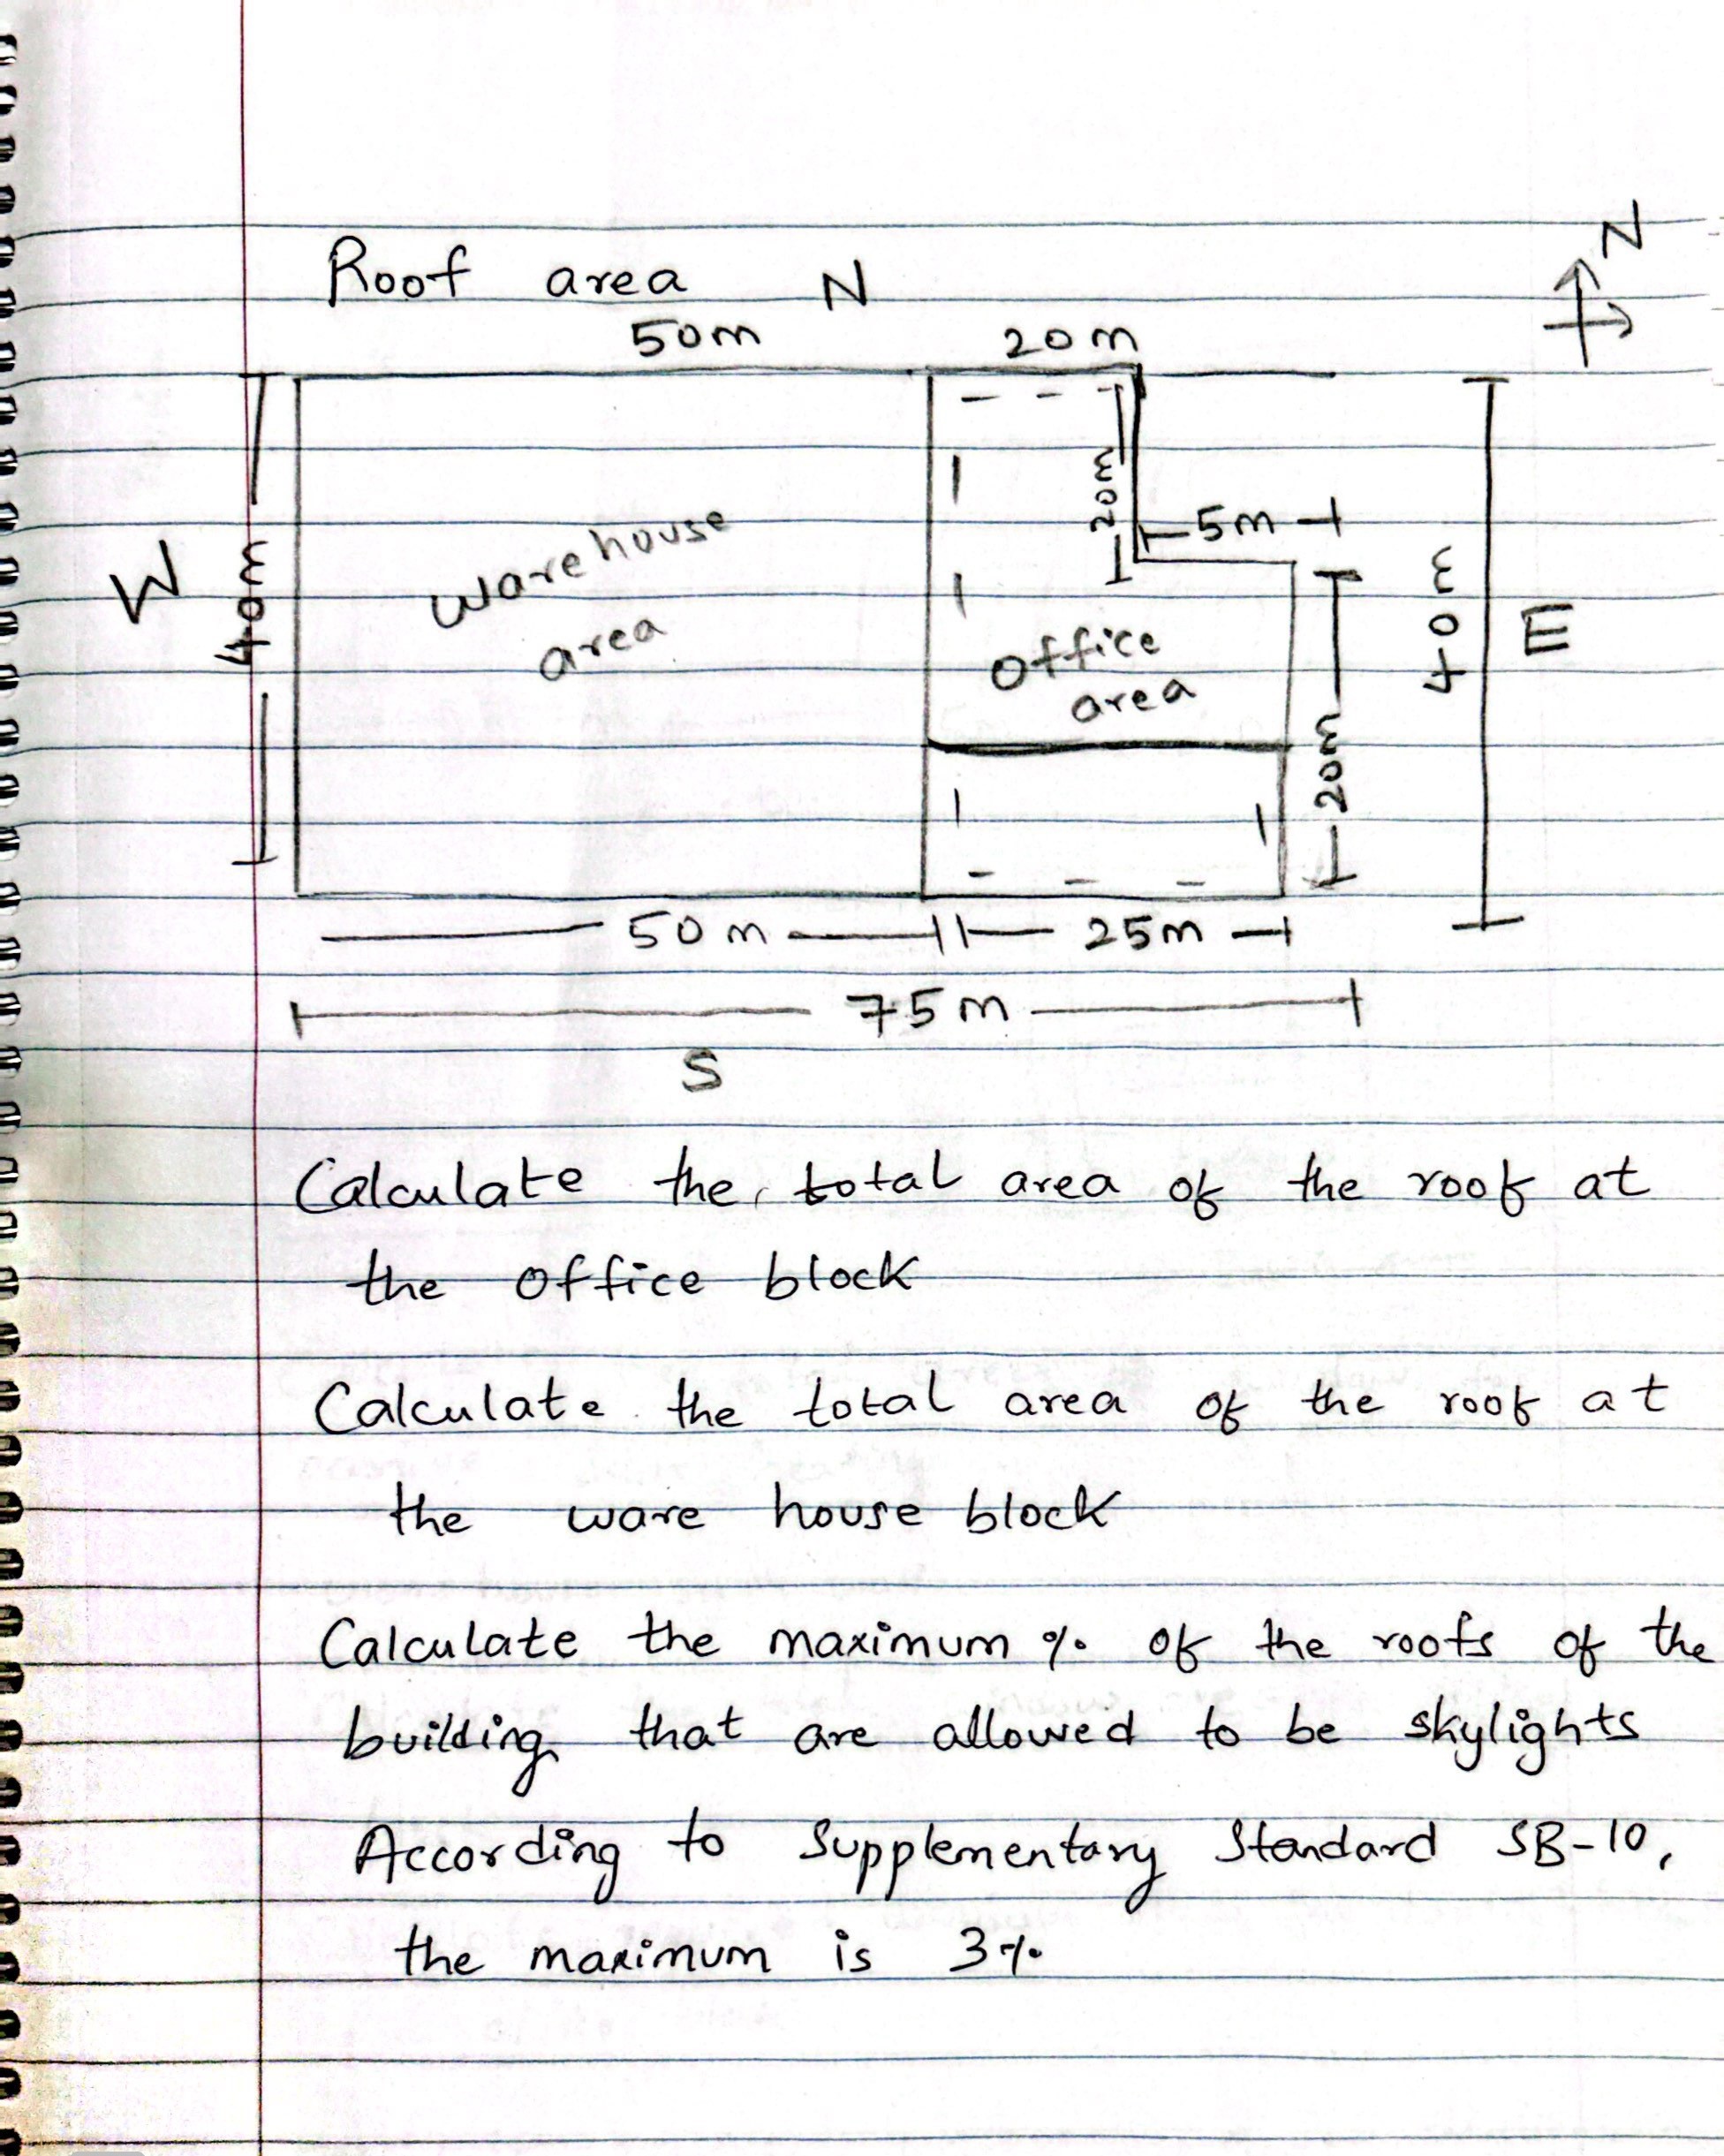 N
Roof area N
50m 20m
20m
5m
W
40m
warehouse
area
office
area
20m
40m
E
50m 25m
75m
S
Calculate the total area of the roof at
the office block
Calculate the total area of the roof at
the ware house block
Calculate the maximum % of the roofs of the
building that are allowed to be skylights
According to Supplementary Standard SB-10,
the maximum is 3%